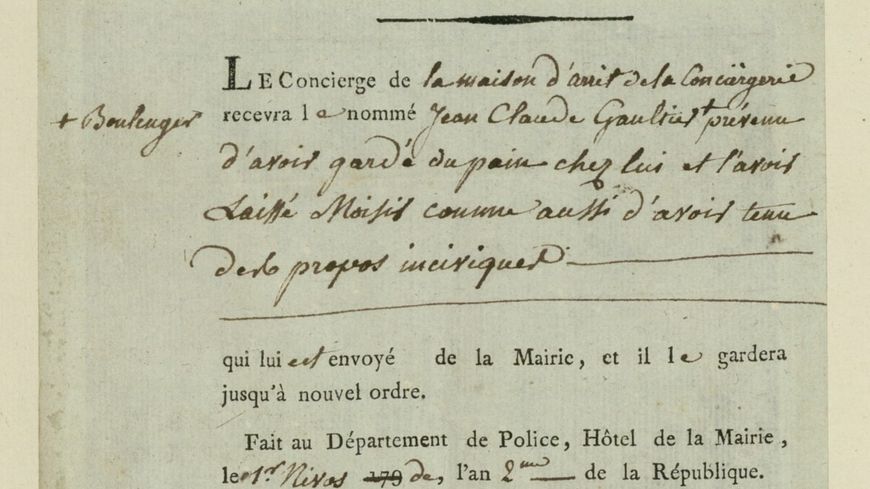 LE Concierge de la maison d'arrit de la Conciergerie
+ Boulenger
recevra le nommé Jean Claude Gaultier + prévenu
d'avoir gardé du pain chez lui et l'avoir
Laissé Moisir comme aussi d'avoir tenu
des propos inciviques
qui lui est envoyé de la Mairie, et il le gardera
jusqu'à nouvel ordre.
Fait au Département de Police, Hôtel de la Mairie,
le 1er Nivos 179 de, l'an 2me de la République.